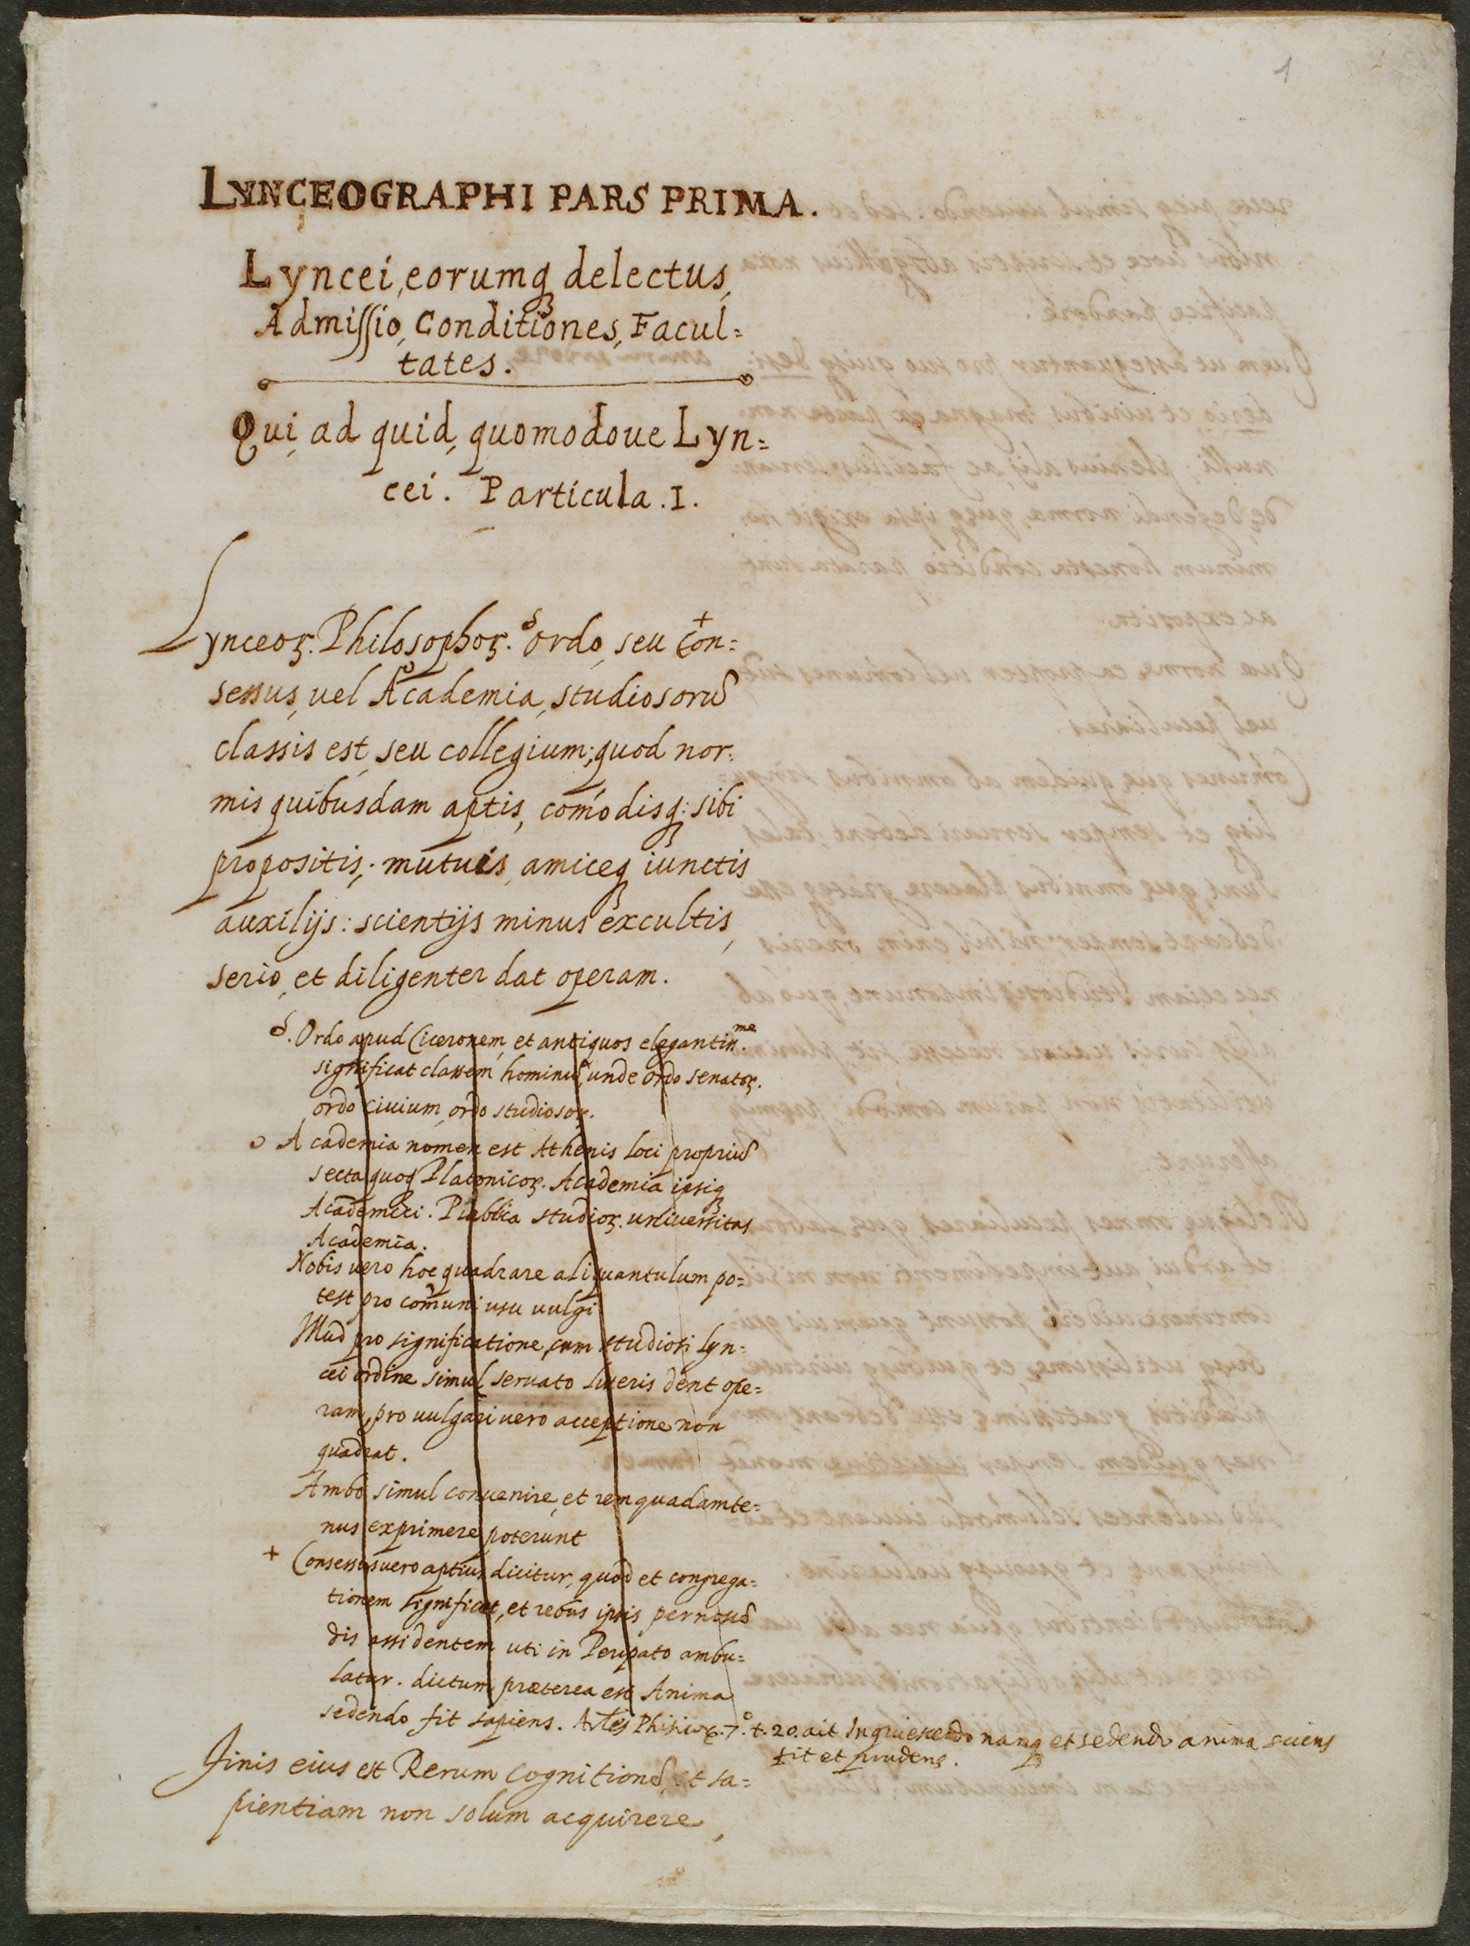 1
LYNCEOGRAPHI PARS PRIMA.
Lyncei, eorumq; delectus,
Admissio, Conditiones, Facul=
tates.
Qui, ad quid, quomodoue Lyn=
cei. Particula .I.
Lynceoꝝ. Philosophoꝝ. ordo, seu Con=
sessus, vel Academia, studiosorũ
classis est, seu collegium; quod nor:
mis quibusdam aptis, com̃odisq; sibi
propositis; mutuis, amiceq; iunctis
auxilijs: scientijs minus excultis,
serio, et diligenter dat operam.
Ordo apud Ciceronem, et antiquos elegantiss.me
significat classem hominũ, unde ordo senatoꝝ.
ordo ciuium, ordo studiosoꝝ.
Academia nomen est Athenis loci propriũ
secta quoq; Platonicoꝝ. Academia ipsiq;
Academici. Publica studioꝝ. uniuersitas
Academia.
Nobis vero hoc quadrare aliquantulum po=
test pro com̃uni usu vulgi
Illud pro significatione, cum studiosi Lyn=
cei ordine simul seruato literis dent ope=
ram, pro uulgari vero acceptione non
quadrat.
Ambo simul conuenire, et rem quadamte=
nus exprimere poterunt
+ Consessus vero aptius dicitur, quod et congrega=
tionem significet, et rebus ipsis pernoscẽ
dis assidentem uti in Peripato ambu=
latur. dictum præterea est Anima
sedendo fit sapiens. 7.º t. 20. ait Inquiescendo namq; et sedendo anima sciens
fit et prudens.
Finis eius est Rerum cognitionẽ, et sa=
pientiam non solum acquirere,